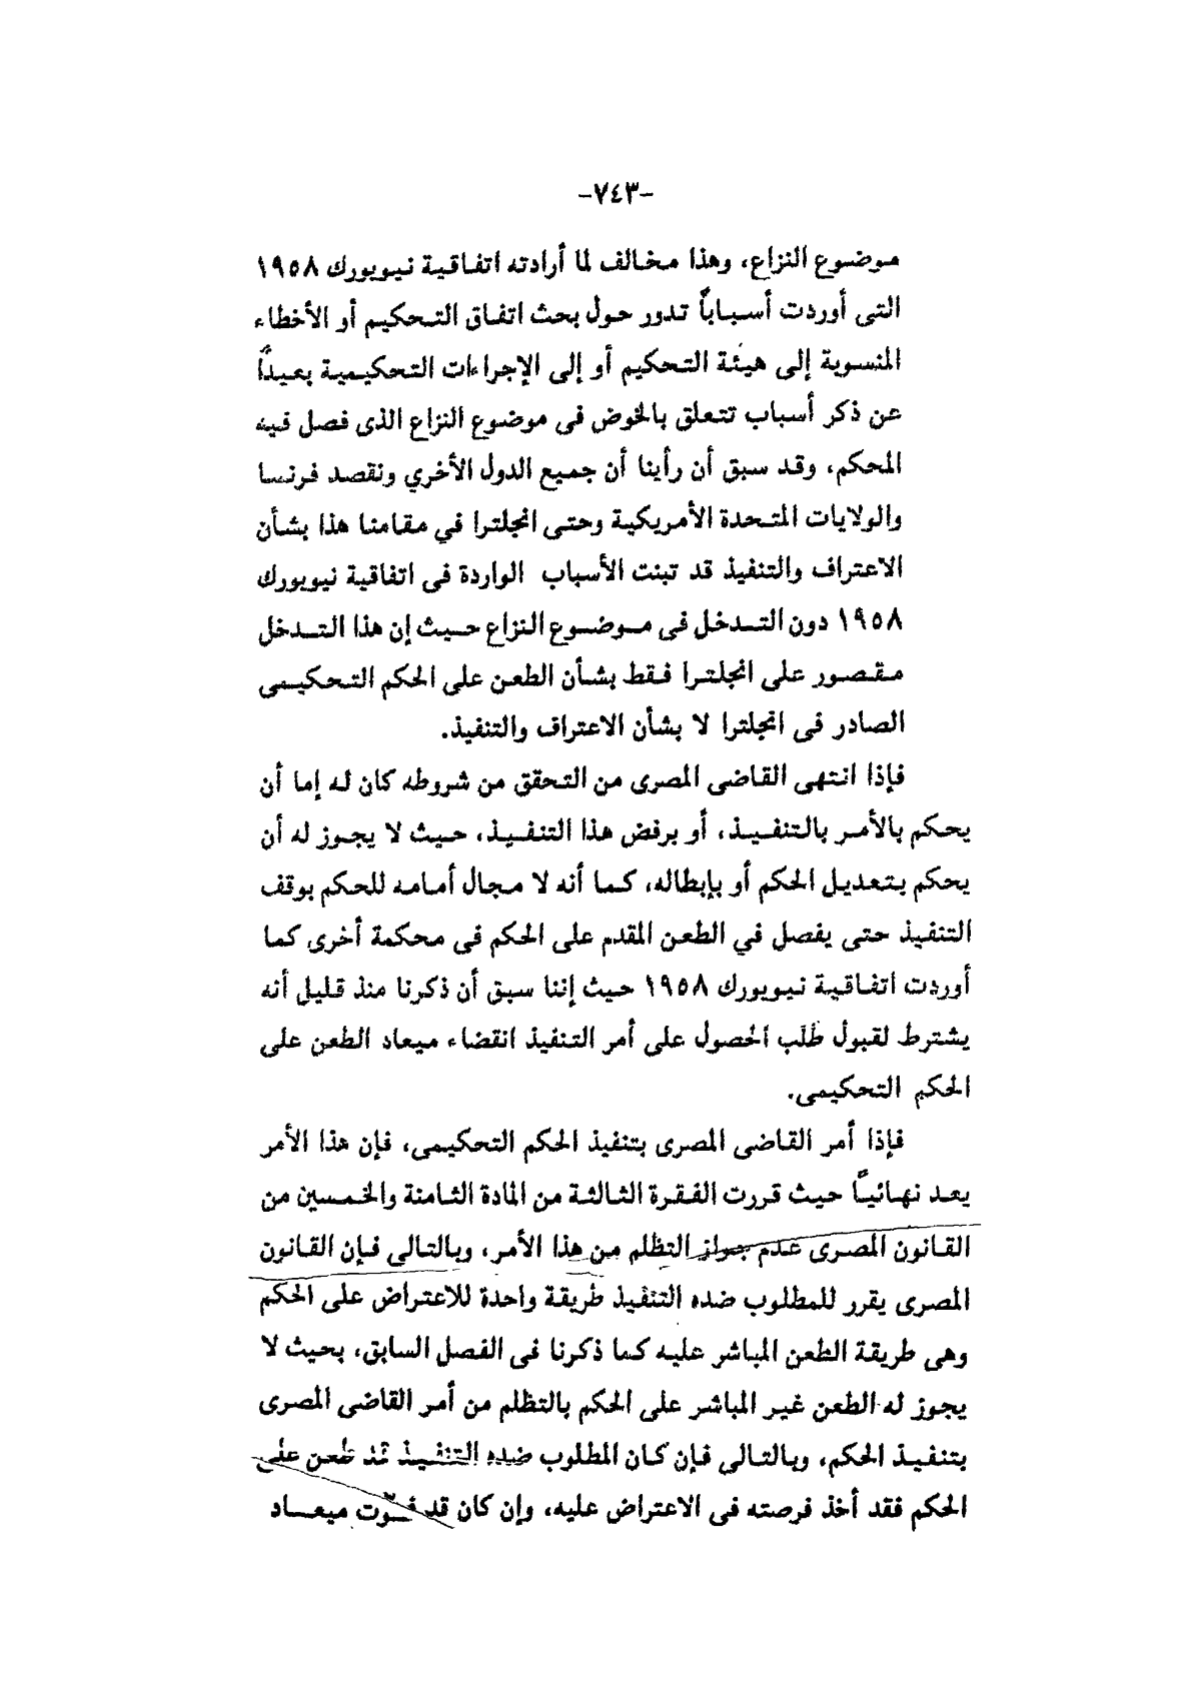 -٧٤٣-
موضوع النزاع، وهذا مخالف لما أرادته اتفاقية نيويورك ١٩٥٨
التى أوردت أسباباً تدور حول بحث اتفاق التحكيم أو الأخطاء
المنسوبة إلى هيئة التحكيم أو إلى الإجراءات التحكيمية بعيداً
عن ذكر أسباب تتعلق بالخوض فى موضوع النزاع الذى فصل فيه
المحكم، وقد سبق أن رأينا أن جميع الدول الأخري ونقصد فرنسا
والولايات المتحدة الأمريكية وحتى انجلترا في مقامنا هذا بشأن
الاعتراف والتنفيذ قد تبنت الأسباب الواردة فى اتفاقية نيويورك
١٩٥٨ دون التدخل فى موضوع النزاع حيث إن هذا التدخل
مقصور على انجلترا فقط بشأن الطعن على الحكم التحكيمى
الصادر فى انجلترا لا بشأن الاعتراف والتنفيذ.
فإذا انتهى القاضى المصرى من التحقق من شروطه كان له إما أن
يحكم بالأمر بالتنفيذ، أو برفض هذا التنفيذ، حيث لا يجوز له أن
يحكم بتعديل الحكم أو بإبطاله، كما أنه لا مجال أمامه للحكم بوقف
التنفيذ حتى يفصل في الطعن المقدم على الحكم فى محكمة أخرى كما
أوردت اتفاقية نيويورك ١٩٥٨ حيث إننا سبق أن ذكرنا منذ قليل أنه
يشترط لقبول طلب الحصول على أمر التنفيذ انقضاء ميعاد الطعن على
الحكم التحكيمى.
فإذا أمر القاضى المصرى بتنفيذ الحكم التحكيمى، فإن هذا الأمر
يعد نهائياً حيث قررت الفقرة الثالثة من المادة الثامنة والخمسين من
القانون المصرى عدم جواز التظلم من هذا الأمر، وبالتالى فإن القانون
المصرى يقرر للمطلوب ضده التنفيذ طريقة واحدة للاعتراض على الحكم
وهى طريقة الطعن المباشر عليه كما ذكرنا فى الفصل السابق، بحيث لا
يجوز له الطعن غير المباشر على الحكم بالتظلم من أمر القاضى المصرى
بتنفيذ الحكم، وبالتالى فإن كان المطلوب ضده التنفيذ قد طعن على
الحكم فقد أخذ فرصته فى الاعتراض عليه، وإن كان قد فوّت ميعاد